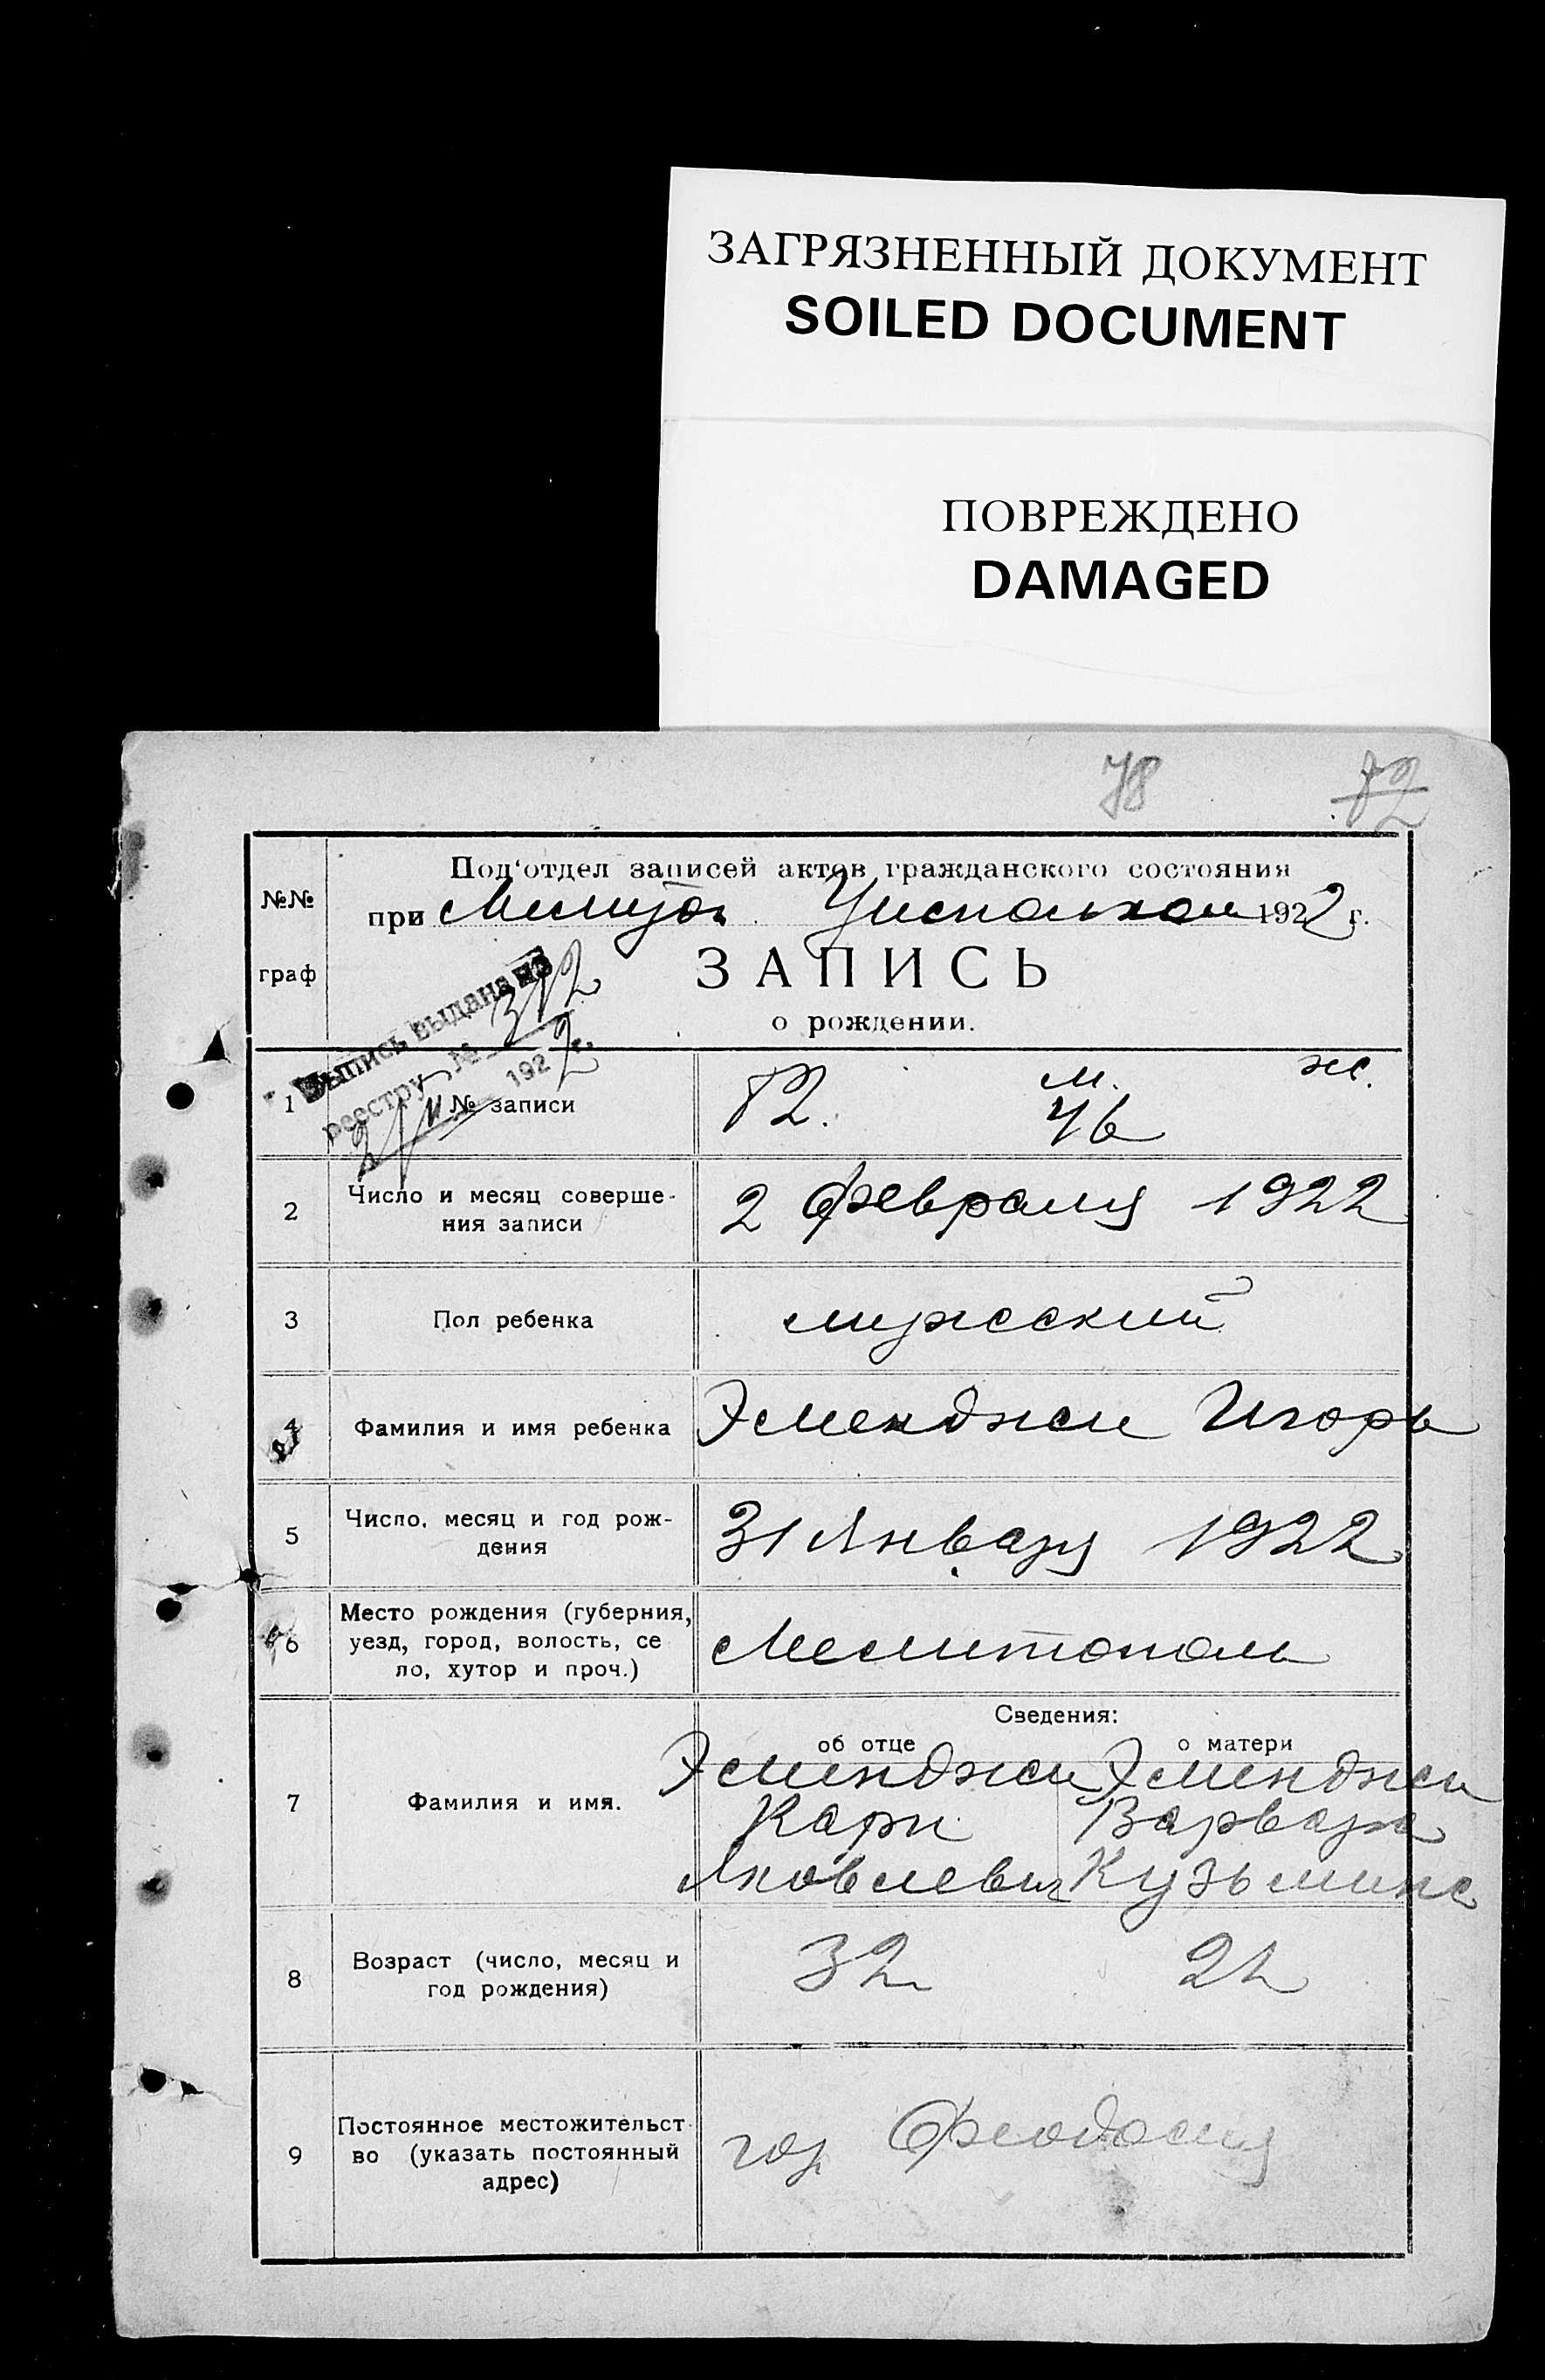 ЗАГРЯЗНЕННЫЙ ДОКУМЕНТ
SOILED DOCUMENT
ПОВРЕЖДЕНО
DAMAGED
78 82
№№ граф
Под'отдел записей актов гражданского состояния
при Мелитоп. Уисполком 1922 г.
ЗАПИСЬ
о рождении.
Выпись выдана по
реестру № 312
2/II 1922 г.
1 № записи 82. м. 46 ж.
2 Число и месяц соверше-
ния записи 2 февраля 1922
3 Пол ребенка мужеский
4 Фамилия и имя ребенка Эменджи Игорь
5 Число, месяц и год рож-
дения 31 Января 1922
6 Место рождения (губерния,
уезд, город, волость, се
ло, хутор и проч.) Мелитополь
Сведения:
об отце о матери
7 Фамилия и имя. Эменджи Эменджи
Карп Варвара
Яковлевич Кузьмина
8 Возраст (число, месяц и
год рождения) 32 22
9 Постоянное местожительст
во (указать постоянный
адрес) гор Феодосия